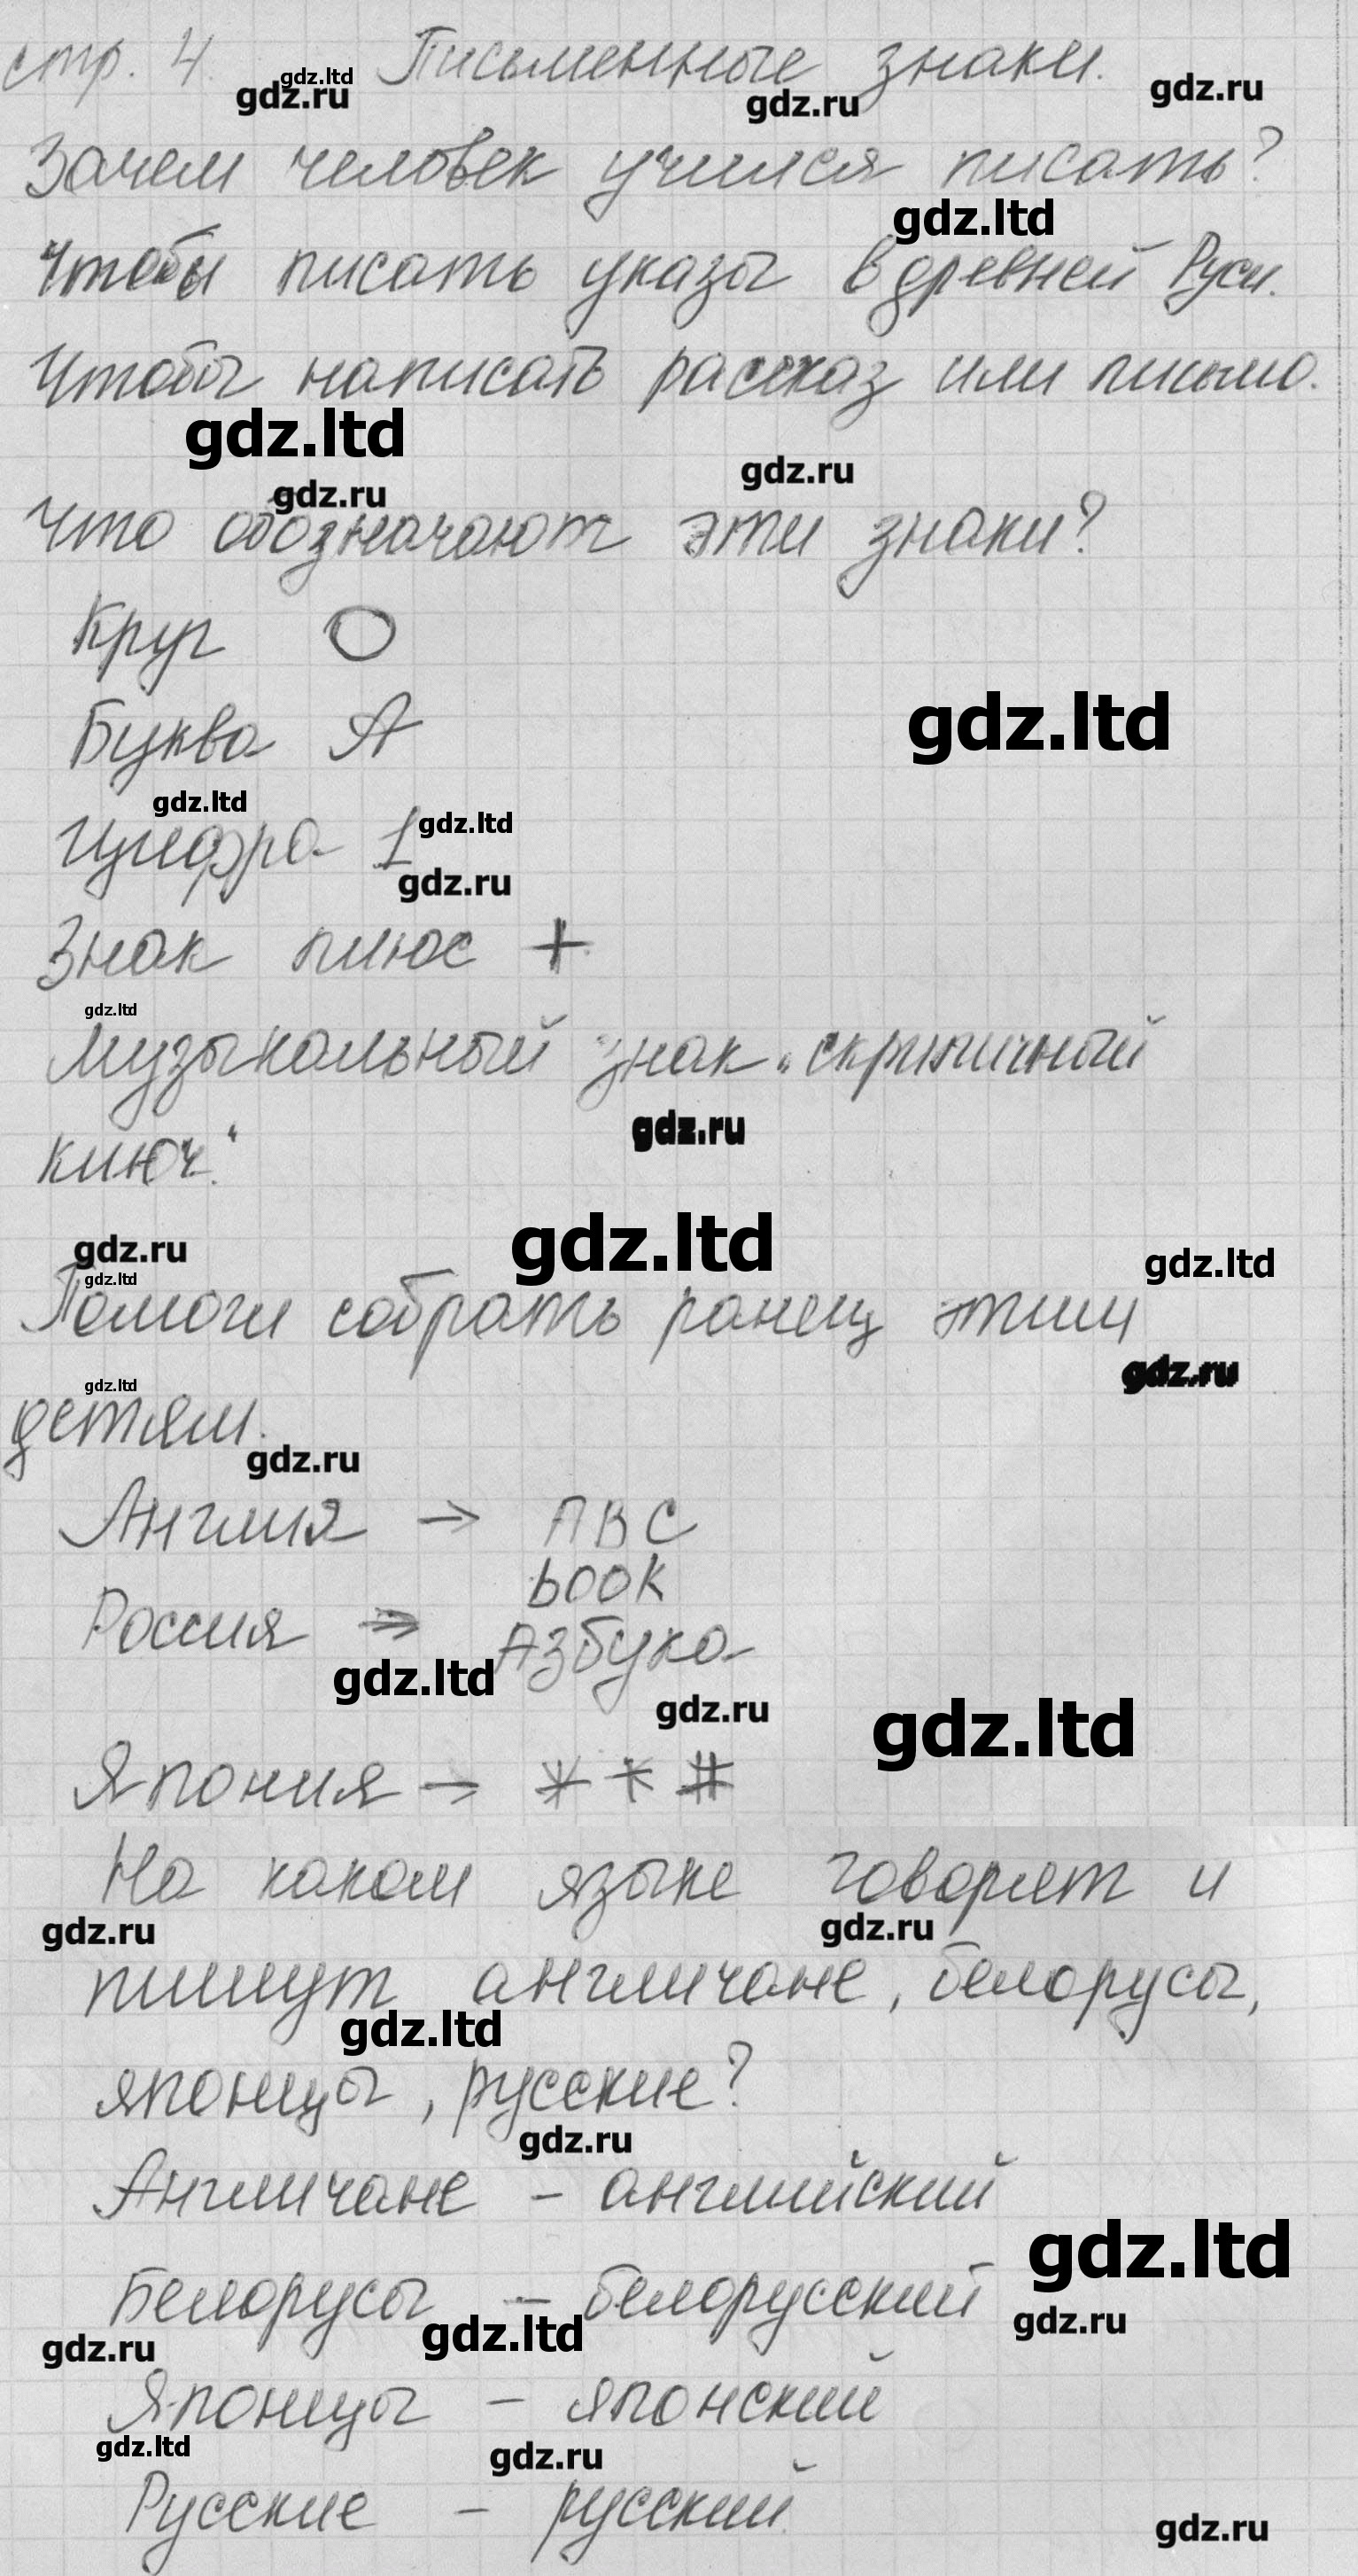 стр. 4. Письменные знаки.
gdz.ltd
gdz.ru gdz.ru gdz.ru
Зачем человек учился писать?
gdz.ltd
Чтобы писать указы в древней Руси.
Чтобы написать рассказ или письмо.
gdz.ltd
gdz.ru gdz.ru
Что обозначают эти знаки?
Круг O
Буква А
gdz.ltd
gdz.ltd gdz.ltd
Цифра 1
gdz.ru
Знак плюс +
gdz.ltd
Музыкальный знак "скрипичный
gdz.ru
ключ".
gdz.ltd
gdz.ru gdz.ltd
gdz.ltd
Помоги собрать ранец этим
gdz.ru
gdz.ltd
детям.
gdz.ru
Англия → ABC
book
Россия → Азбука
gdz.ltd
gdz.ru gdz.ltd
Япония → * * #
На каком языке говорят и
gdz.ru gdz.ru
пишут англичане, белорусы,
gdz.ltd
японцы, русские?
gdz.ru
Англичане - английский
gdz.ltd
Белорусы - белорусский
gdz.ru gdz.ltd gdz.ru
Японцы - японский
gdz.ltd gdz.ru
Русские - русский.
gdz.ru